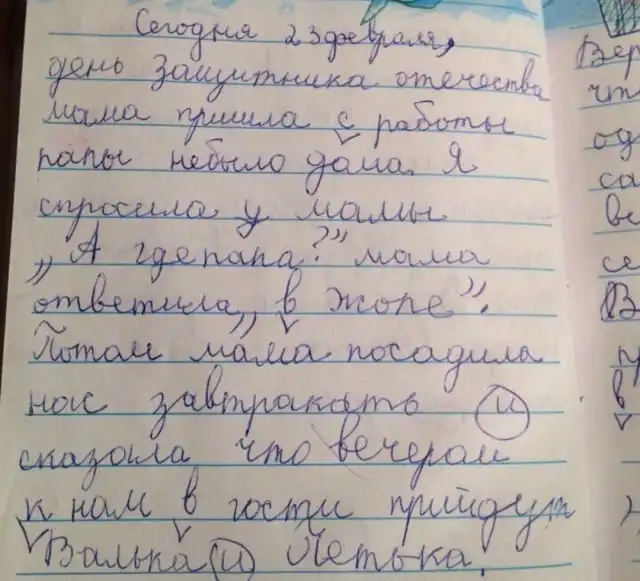 Сегодня 23 февраля,
день защитника отечества
мама пришла с работы
папы небыло дома. Я
спросила у мамы
„А где папа?" мама
ответила „в жопе".
Потом мама посадила
нас завтракать и
сказала что вечером
к нам в гости прийдут
Валька и Петька.
Вер
что
од
са
ве
се
В
в